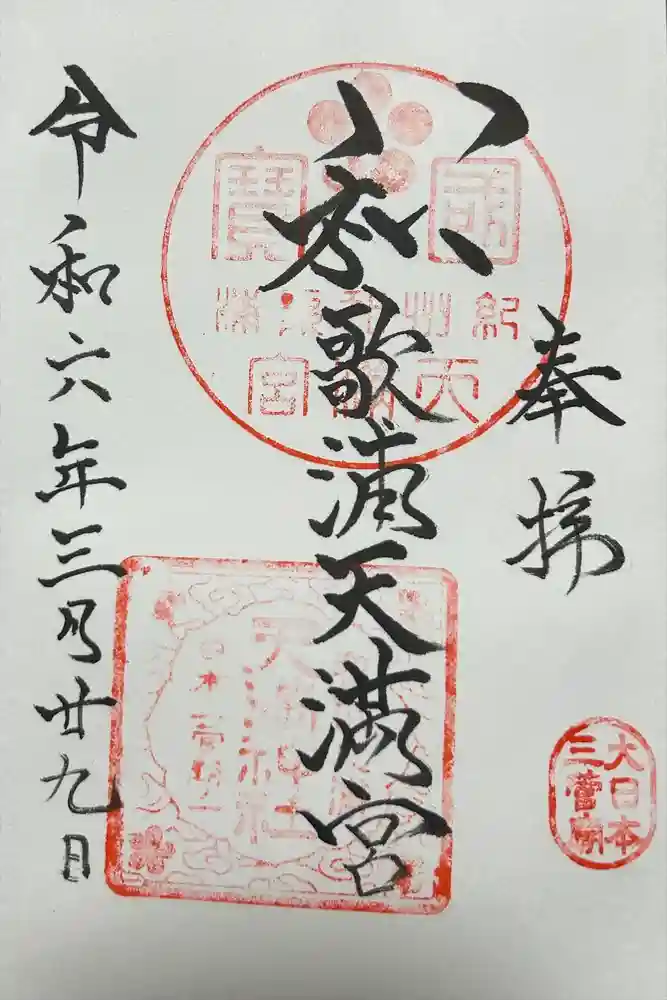 奉拝
大日本
三菅廟
和歌浦天満宮
國寶
紀州和歌浦
天満宮
令和六年三月廿九日